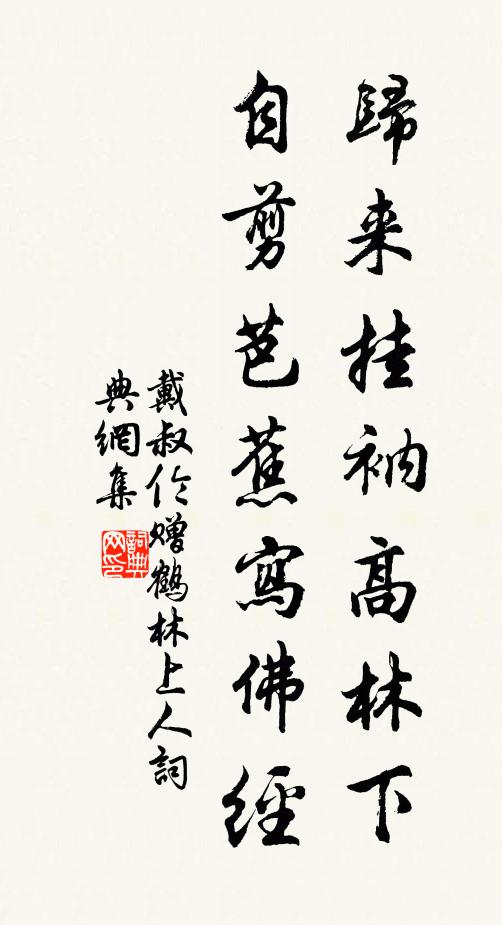 歸来挂衲高林下
自剪芭蕉寫佛經
戴叔伦贈鶴林上人詞
典網集
詞典
网印